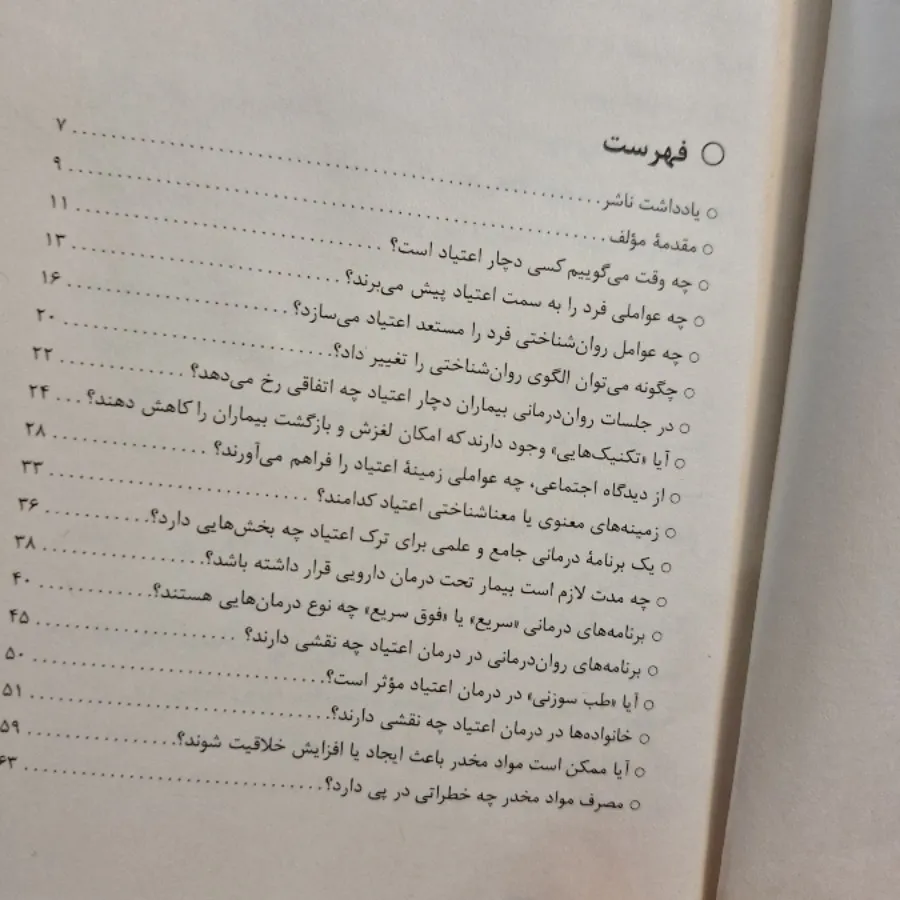 ○ فهرست
○ یادداشت ناشر ........ ۷
○ مقدمهٔ مؤلف ........ ۹
○ چه وقت می‌گوییم کسی دچار اعتیاد است؟ ........ ۱۱
○ چه عواملی فرد را به سمت اعتیاد پیش می‌برند؟ ........ ۱۳
○ چه عوامل روان‌شناختی فرد را مستعد اعتیاد می‌سازد؟ ........ ۱۶
○ چگونه می‌توان الگوی روان‌شناختی را تغییر داد؟ ........ ۲۰
○ در جلسات روان‌درمانی بیماران دچار اعتیاد چه اتفاقی رخ می‌دهد؟ ........ ۲۲
○ آیا «تکنیک‌هایی» وجود دارند که امکان لغزش و بازگشت بیماران را کاهش دهند؟ ... ۲۴
○ از دیدگاه اجتماعی، چه عواملی زمینهٔ اعتیاد را فراهم می‌آورند؟ ........ ۲۸
○ زمینه‌های معنوی یا معناشناختی اعتیاد کدامند؟ ........ ۳۳
○ یک برنامهٔ درمانی جامع و علمی برای ترک اعتیاد چه بخش‌هایی دارد؟ ........ ۳۶
○ چه مدت لازم است بیمار تحت درمان دارویی قرار داشته باشد؟ ........ ۳۸
○ برنامه‌های درمانی «سریع» یا «فوق سریع» چه نوع درمان‌هایی هستند؟ ........ ۴۰
○ برنامه‌های روان‌درمانی در درمان اعتیاد چه نقشی دارند؟ ........ ۴۵
○ آیا «طب سوزنی» در درمان اعتیاد مؤثر است؟ ........ ۵۰
○ خانواده‌ها در درمان اعتیاد چه نقشی دارند؟ ........ ۵۱
○ آیا ممکن است مواد مخدر باعث ایجاد یا افزایش خلاقیت شوند؟ ........ ۵۹
○ مصرف مواد مخدر چه خطراتی در پی دارد؟ ........ ۶۳